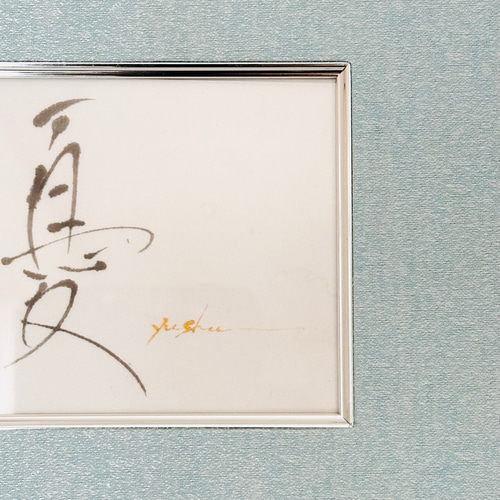 憂
yushu